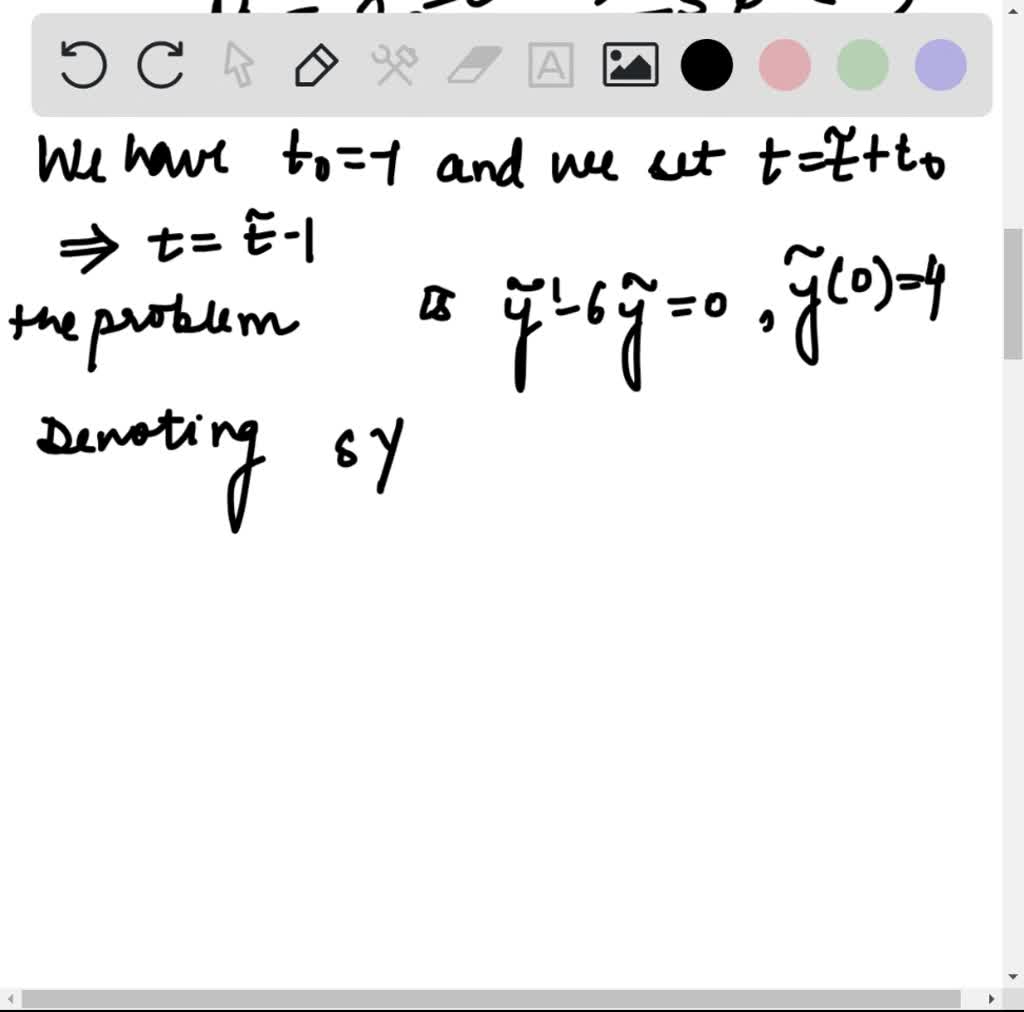 A
We have t₀=-1 and we set t=t̃+t₀
⇒ t= t̃-1
the problem is ỹ'-6ỹ=0 , ỹ(0)=4
Denoting sY